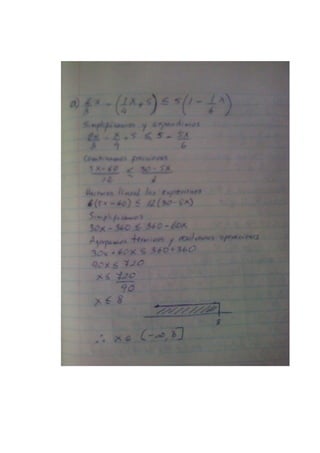 a) 2/3 x - (1/4 x + 5) ≤ 5 (1 - 1/6 x)
Simplificamos y expandimos
2x/3 - x/4 + 5 ≤ 5 - 5x/6
Combinamos fracciones
5x-60/12 ≤ 30-5x/6
lineal las expresiones
6(5x-60) ≤ 12(30-5x)
Simplificamos
30x-360 ≤ 360-60x
Agrupamos términos y realizamos operaciones
30x+60x ≤ 360+360
90x ≤ 720
x ≤ 720/90
x ≤ 8
8
∴ x ∈ (-∞, 8]